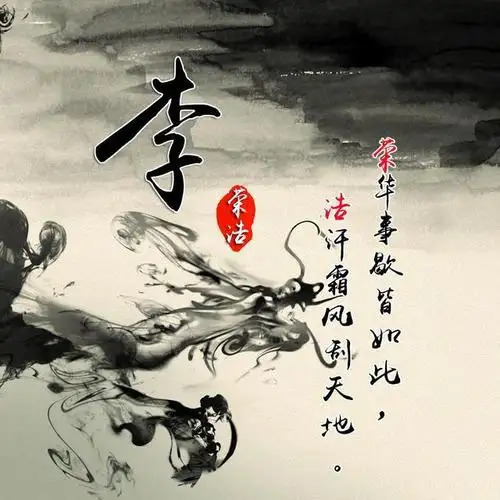 李
荣洁
荣华事歇皆如此，
洁汗霜风刮天地。